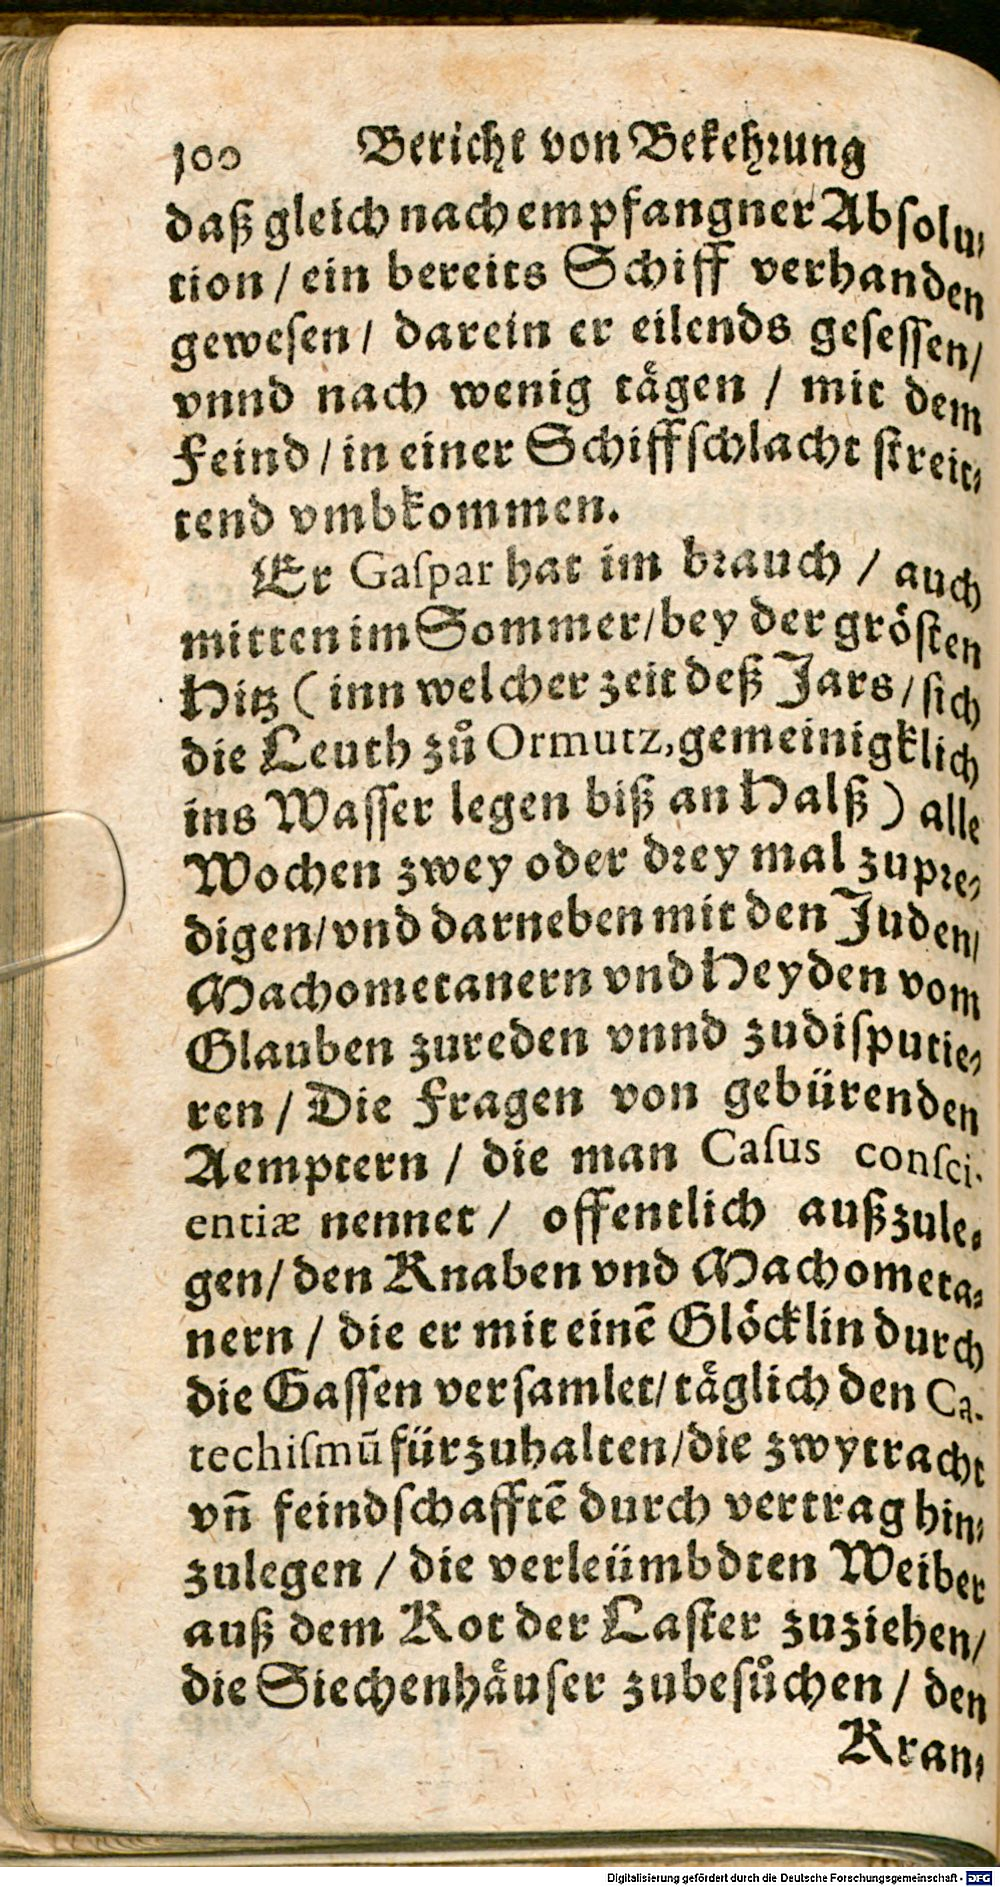 100 Bericht von Bekehrung
daß gleich nach empfangner Absolu⸗
tion / ein bereits Schiff verhanden
gewesen / darein er eilends gesessen /
vnnd nach wenig taͤgen / mit dem
Feind / in einer Schiffschlacht streit⸗
tend vmbkommen.
Er Gaspar hat im brauch / auch
mitten im Sommer / bey der groͤsten
Hitz ( inn welcher zeit deß Jars / sich
die Leuth zuͦ Ormutz, gemeinigklich
ins Wasser legen biß an Halß ) alle
Wochen zwey oder drey mal zupre⸗
digen / vnd darneben mit den Juden /
Machometanern vnd Heyden vom
Glauben zureden vnnd zudisputie⸗
ren / Die Fragen von gebürenden
Aemptern / die man Casus consci-
entiæ nennet / offentlich außzule⸗
gen / den Knaben vnd Machometa⸗
nern / die er mit einē Gloͤcklin durch
die Gassen versamlet / taͤglich den Ca-
techismū fürzuhalten / die zwytracht
vn̄ feindschafftē durch vertrag hin⸗
zulegen / die verleümbdten Weiber
auß dem Kot der Laster zuziehen /
die Siechenhaͤuser zubesuͦchen / den
Kran⸗
Digitalisierung gefördert durch die Deutsche Forschungsgemeinschaft - DFG